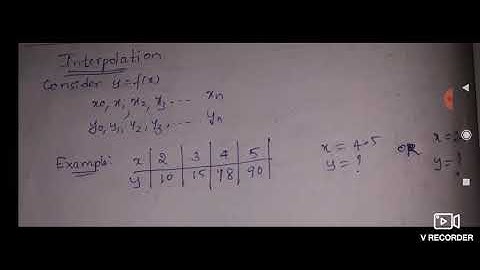 Interpolation
Consider y=f(x)
x0, x1, x2, x3, ... xn
y0, y1, y2, y3, ... yn
Example: x | 2 | 3 | 4 | 5 x = 4.5 OR x =
y | 10 | 15 | 18 | 90 y = ? y = ?
V RECORDER